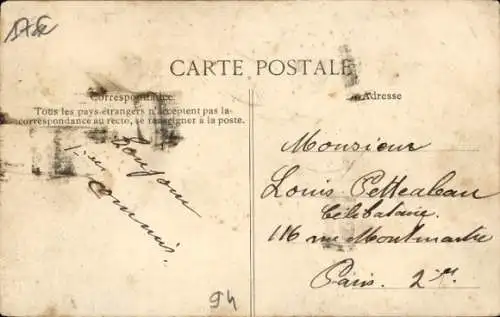 CARTE POSTALE
Correspondance
Tous les pays étrangers n'acceptent pas la
correspondance au recto, se renseigner à la poste.
Adresse
Bonjour
Monsieur
Louis
Célibataire.
116 rue Montmartre
Paris. 2
94